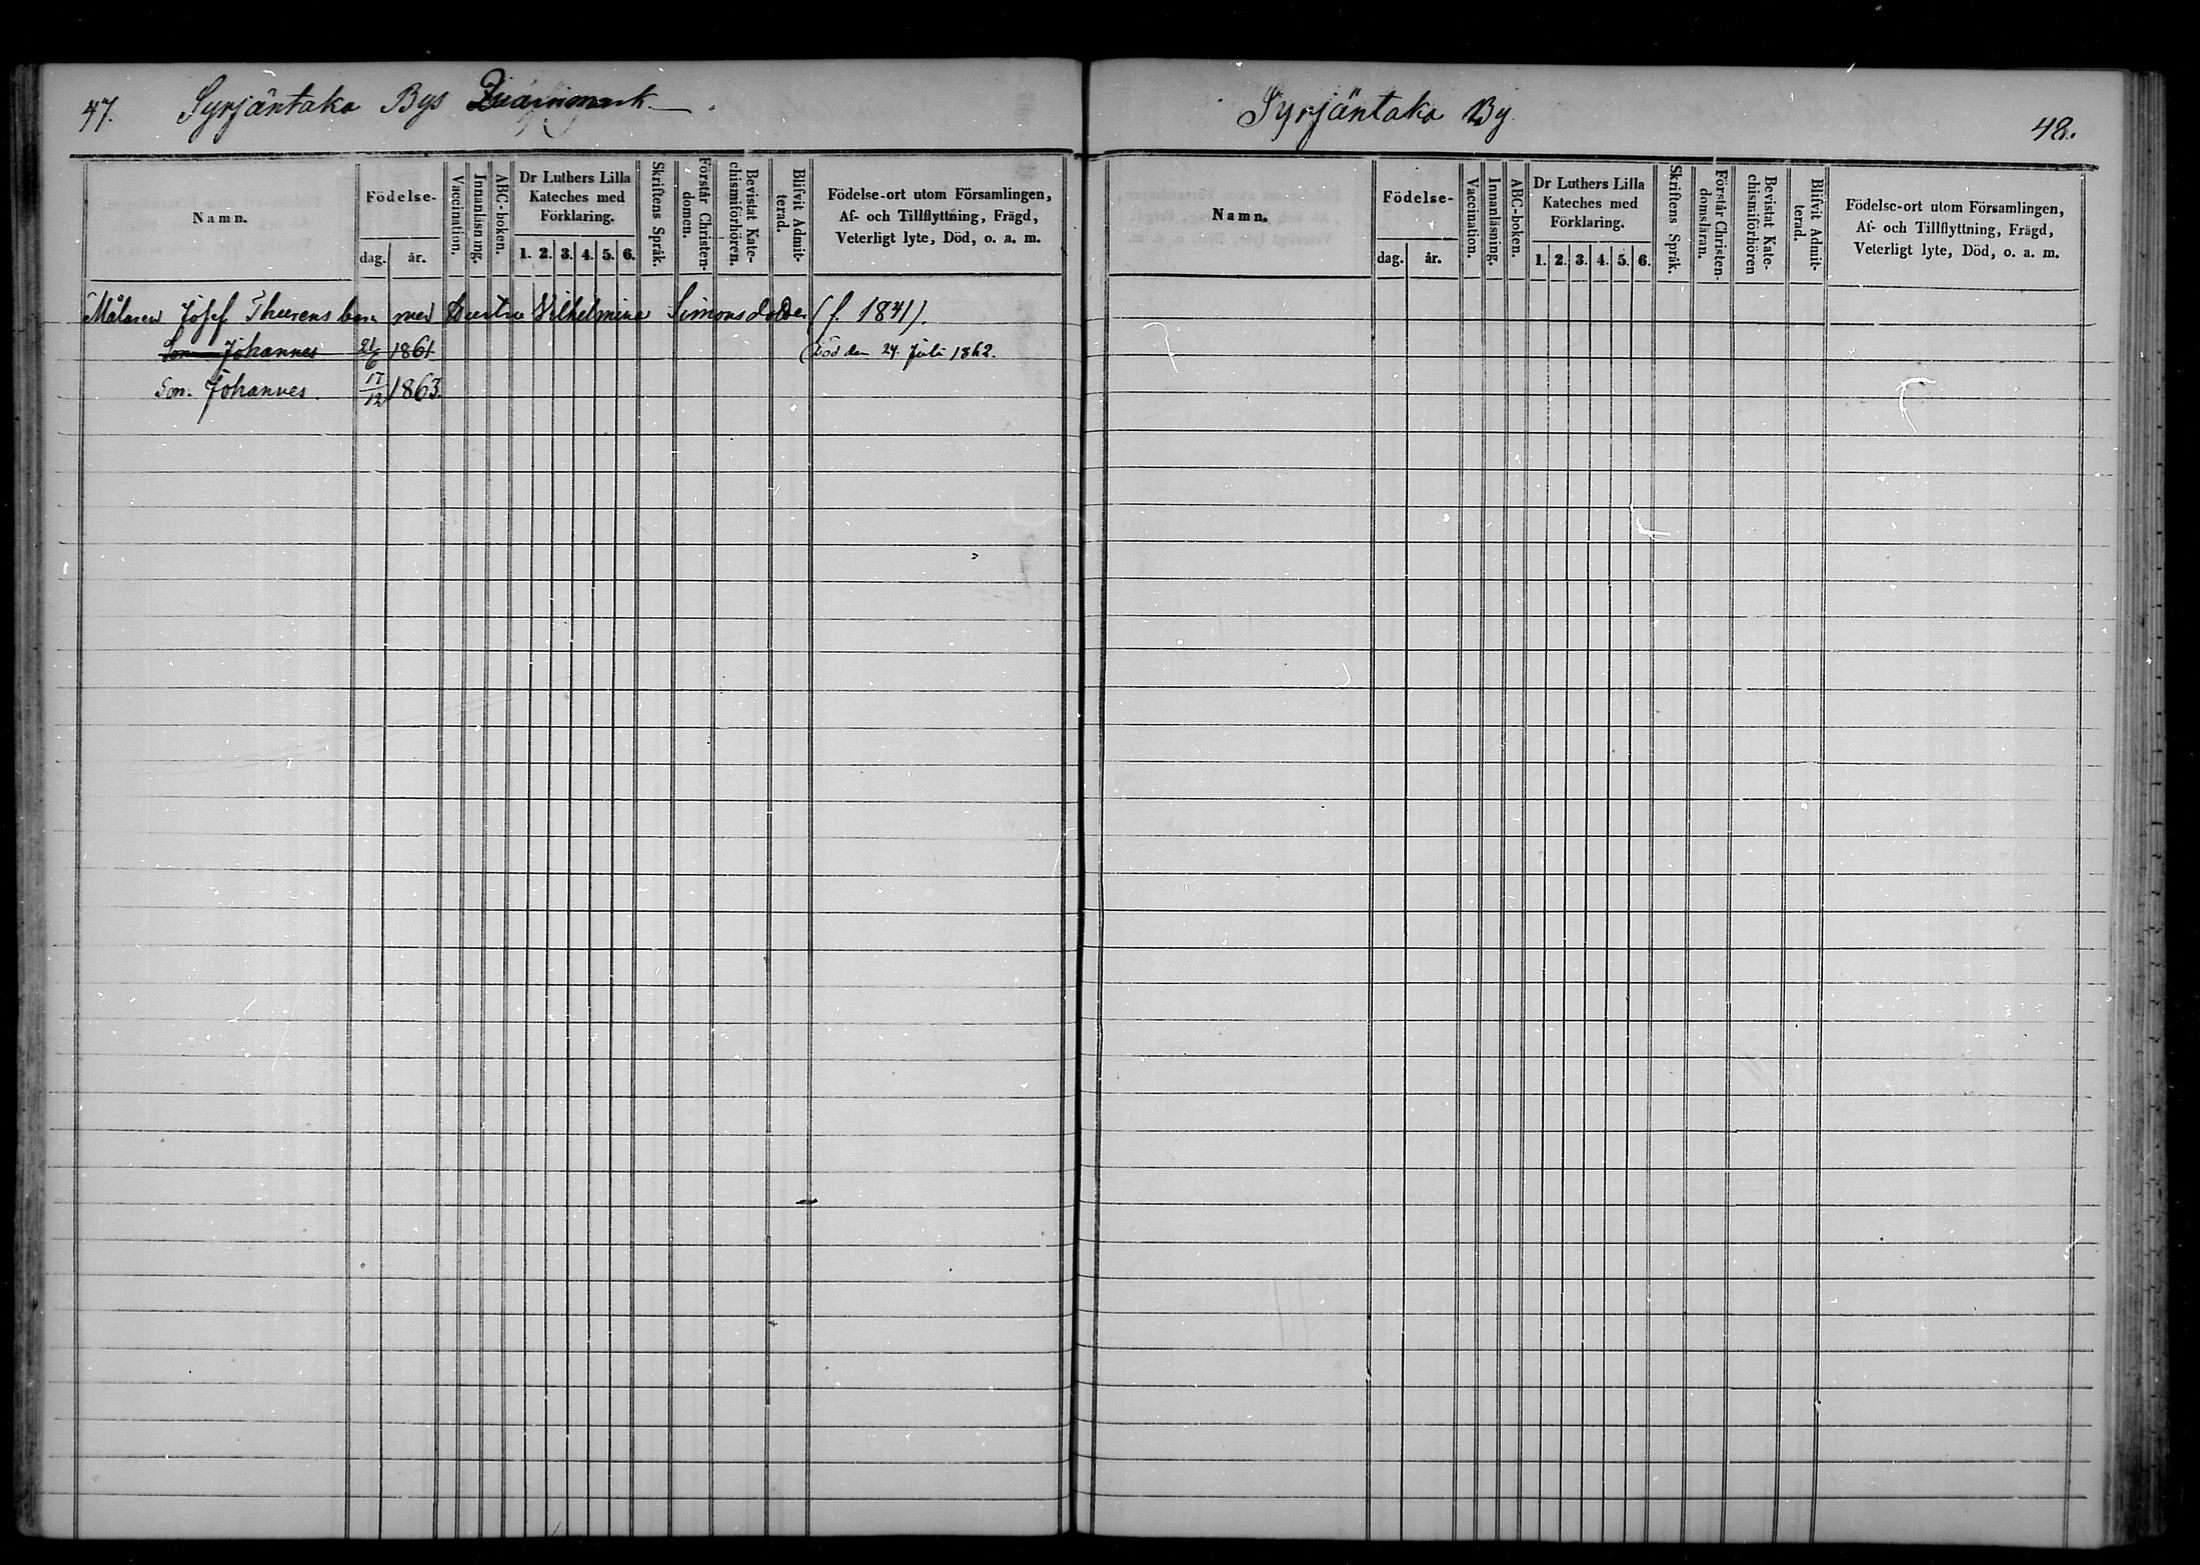 47. Syrjäntaka Bys
Namn.
Födelse-
dag.
år.
Vaccination.
Innanläsning.
ABC-boken.
Dr Luthers Lilla
Kateches med
Förklaring.
1. 2. 3. 4. 5. 6.
Skriftens Språk.
Förstår Christen-
domen.
Bevistat Kate-
chismiförhören.
Blifvit Admit-
terad.
Födelse-ort utom Församlingen,
Af- och Tillflyttning, Frägd,
Veterligt lyte, Död, o. a. m.
Målaren Josef Thurens barn med Wilhelmina Simonsdotter (f. 1841).
Son Johannes 21/6 1861 Död den 24. Juli 1862.
Son. Johannes. 17/12 1863.
Syrjäntaka By 48.
Namn.
Födelse-
dag.
år.
Vaccination.
Innanläsning.
ABC-boken.
Dr Luthers Lilla
Kateches med
Förklaring.
1. 2. 3. 4. 5. 6.
Skriftens Språk.
Förstår Christen-
domsläran.
Bevistat Kate-
chismiförhören
Blifvit Admit-
terad.
Födelse-ort utom Församlingen,
Af- och Tillflyttning, Frägd,
Veterligt lyte, Död, o. a. m.